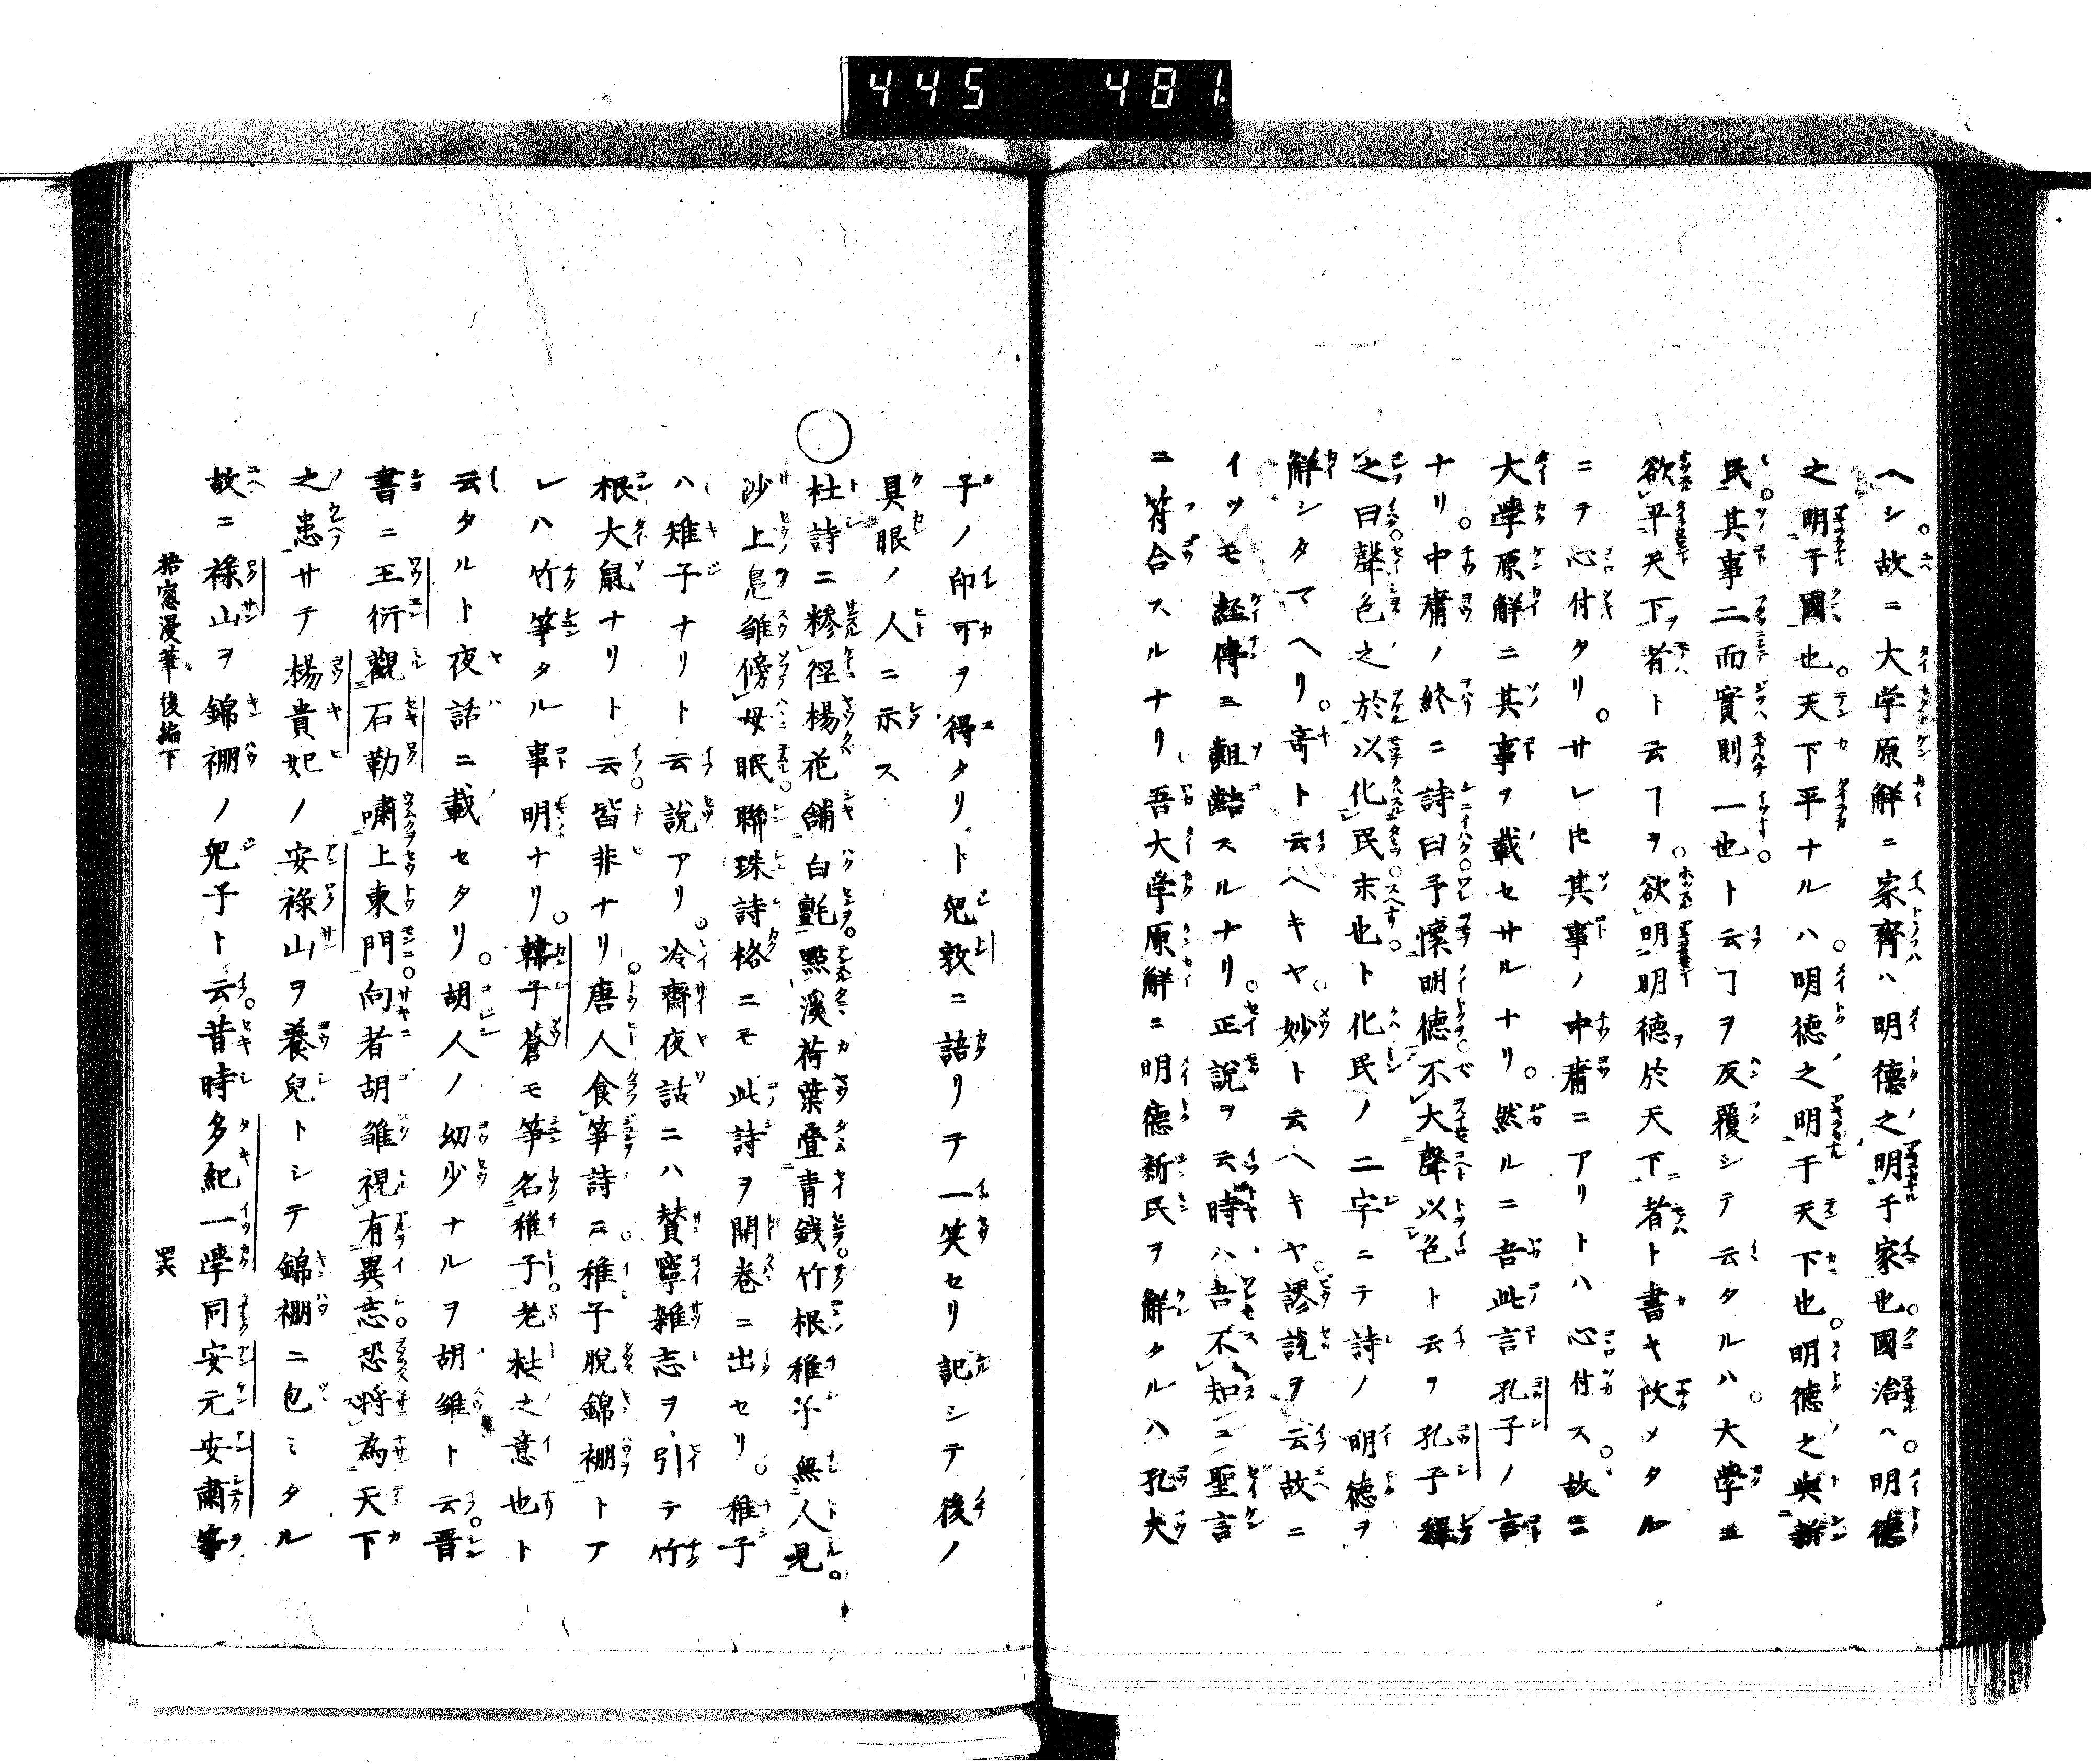 445 481
ヘシ。故ニ大学原解ニ家齊ハ明德之明于家也。國治ハ。明德
之明于國也。天下平ナルハ。明德之明于天下也。明德之與新
民。其事二而實則一也ト云ヿヲ反覆シテ云タルハ。大學ニ
欲平天下者ト云ヿヲ。欲明明德於天下者ト書キ改メタル
ニテ心付タリ。サレ𪜈其事ノ中庸ニアリトハ心付ス。故ニ
大學原解ニ其事ヲ載セサルナリ。然ルニ吾此言孔子ノ言
ナリ。中庸ノ終ニ詩曰予懷明德不大聲以色ト云ヲ孔子釋
之曰聲色之於以化民末也ト化民ノ二字ニテ詩ノ明德ヲ
解シタマヘリ。奇ト云ヘキヤ。妙ト云ヘキヤ。謬說ヲ云故ニ
イツモ経傳ニ齟齬スルナリ。正説ヲ云時ハ吾不知ニ聖言
ニ符合スルナリ。吾大学原解ニ明德新民ヲ解タルハ孔夫
子ノ印可ヲ得タリト兒敦ニ語リテ一笑セリ記シテ後ノ
具眼ノ人ニ示ス
○杜詩ニ糝徑楊花舗白氈點溪荷葉疊青錢竹根稚子無人見
沙上鳧雛傍母眠。聯珠詩格ニモ此詩ヲ開卷ニ出セリ。稚子
ハ雉子ナリト云說アリ。冷齋夜話ニハ贊寧雜志ヲ引テ竹
根大鼠ナリト云。皆非ナリ。唐人食筍詩ニ。稚子脫錦棚トア
レハ竹筍タル事明ナリ。韓子蒼モ筍名稚子。老杜之意也ト
云タルト夜話ニ載セタリ。胡人ノ幼少ナルヲ胡雛ト云。晋
書ニ王衍觀石勒嘯上東門。向者胡雛視有異志。恐將為天下
之患サテ楊貴妃ノ安祿山ヲ養兒トシテ錦棚ニ包ミタル
故ニ祿山ヲ錦棚ノ兒子ト云。昔時多紀一學同安元安肅等
梧窓漫筆後編下